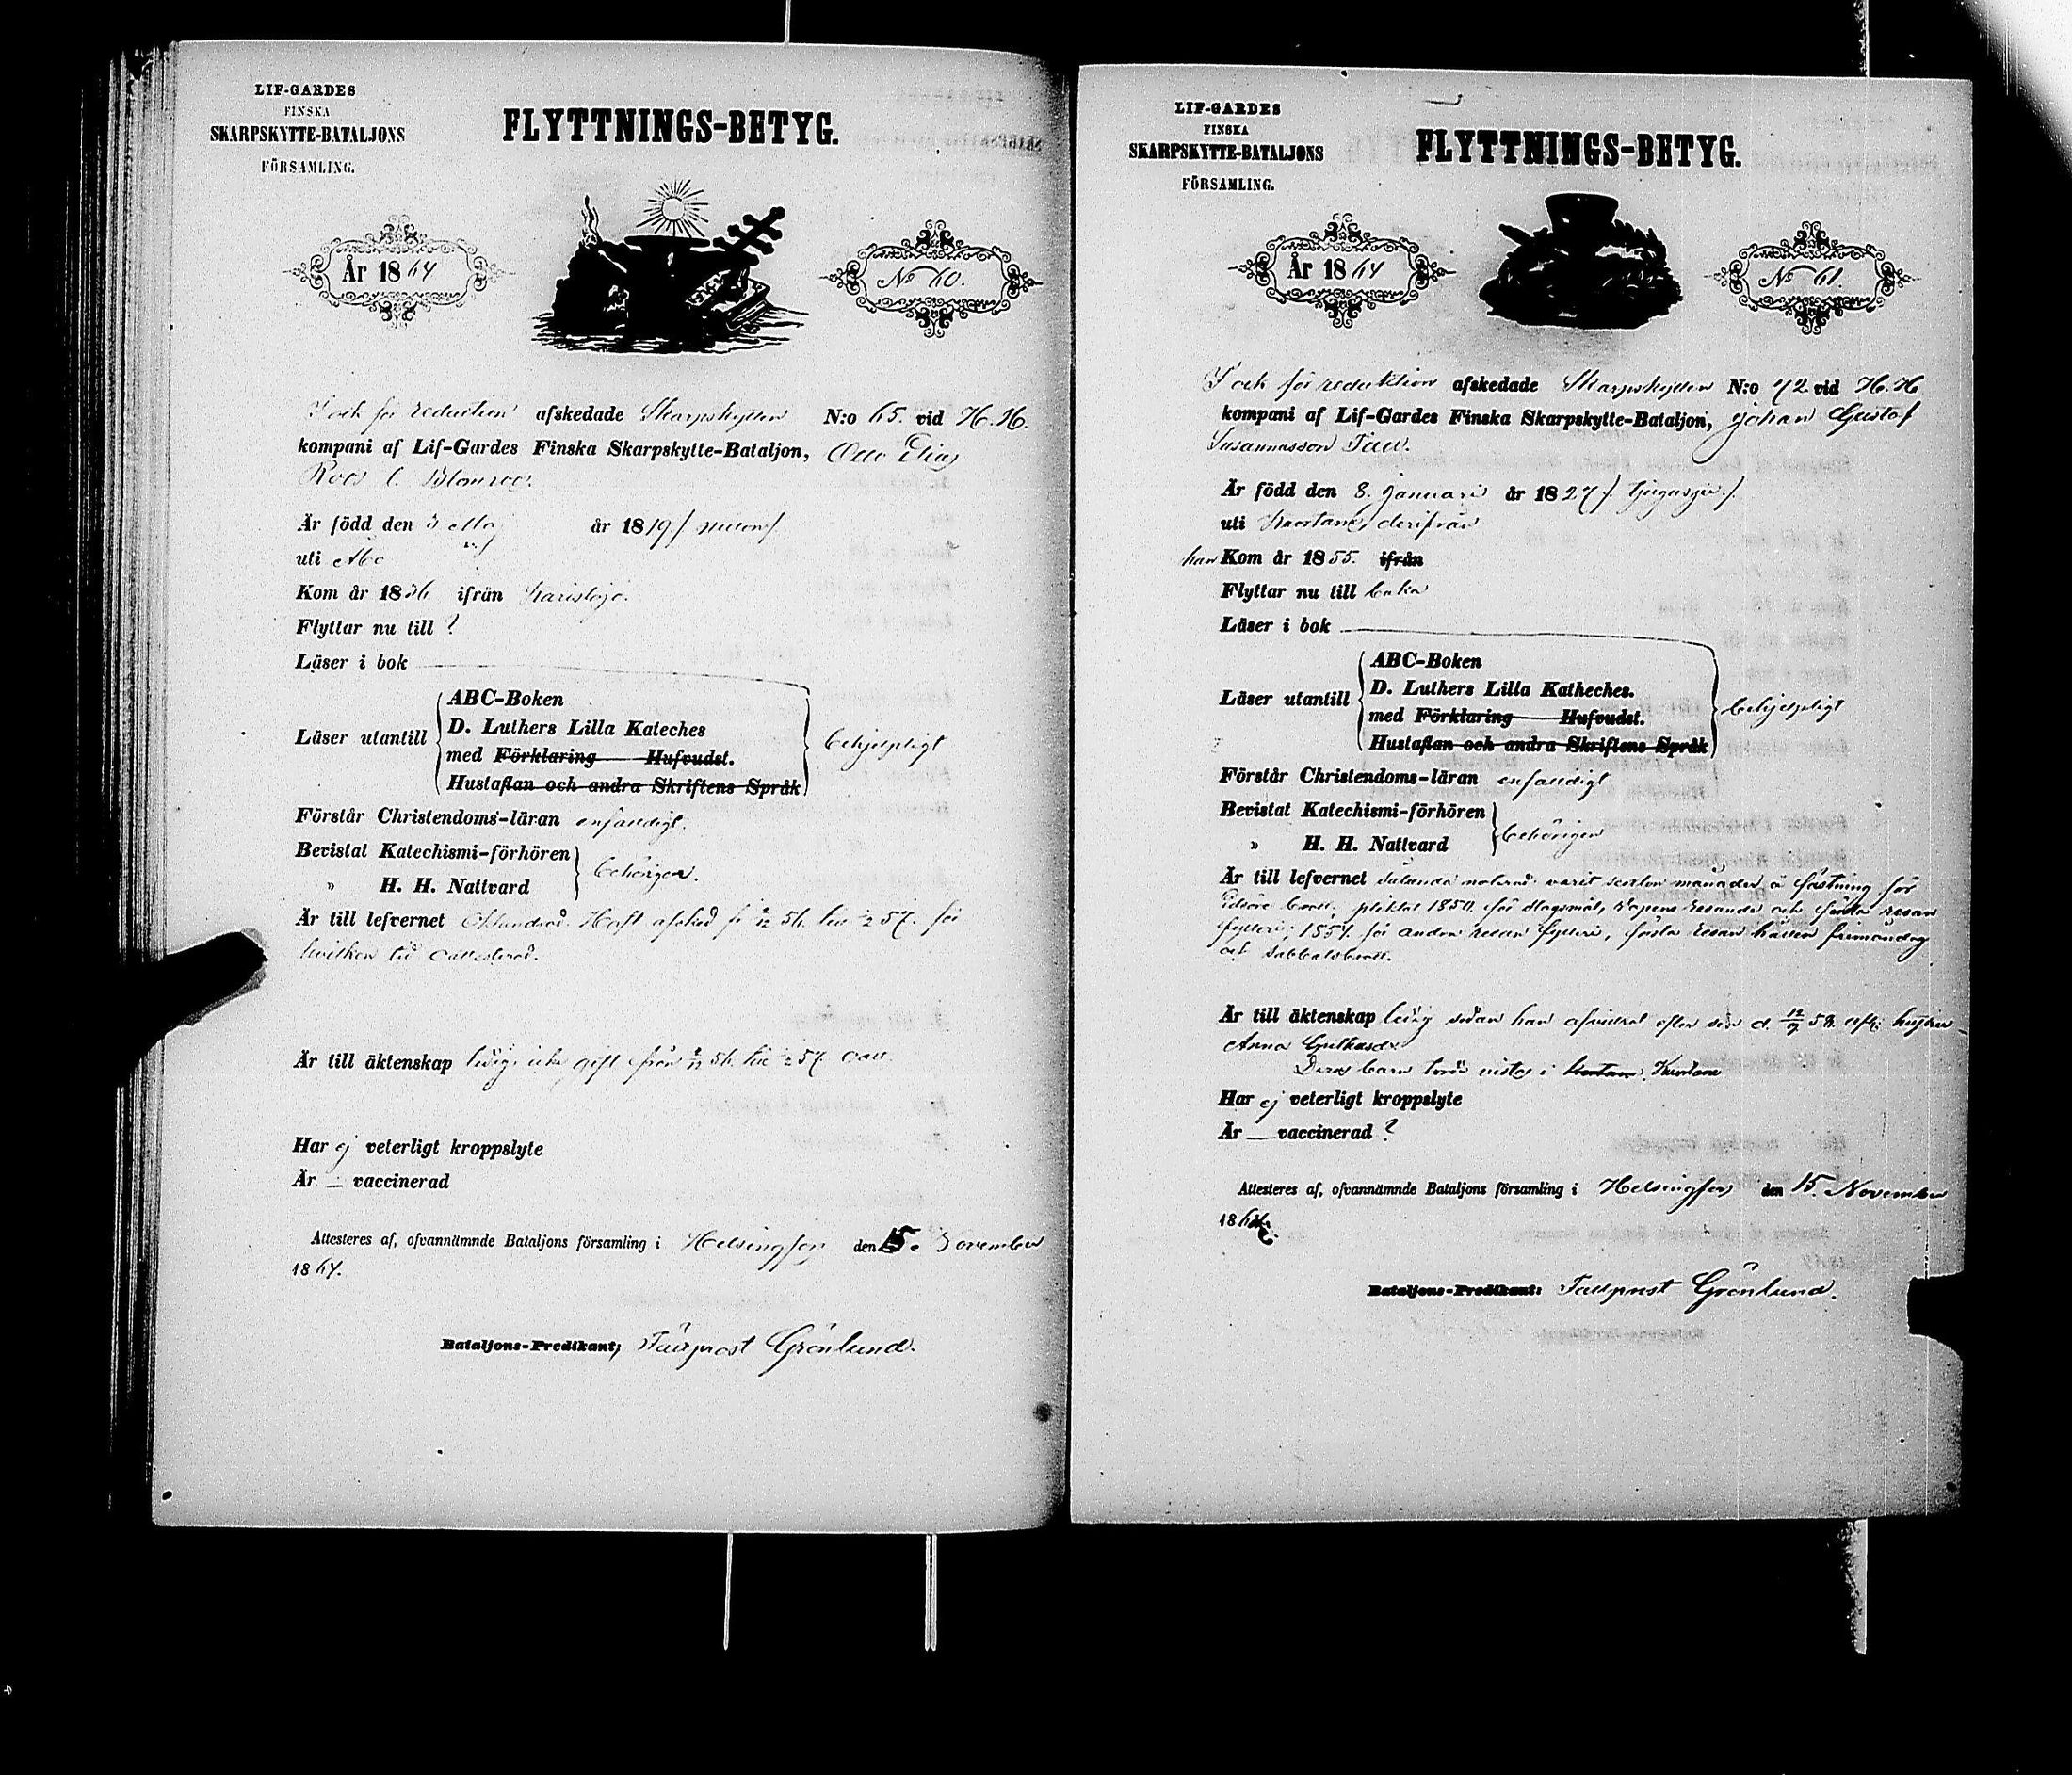 LIF-GARDES
FINSKA
SKARPSKYTTE-BATALJONS
FÖRSAMLING.
FLYTTNINGS-BETYG.
År 1864
No 60.
för reduction afskedade Skarpskytten N:o 65. vid H. H.
kompani af Lif-Gardes Finska Skarpskytte-Bataljon, Otto Elias
Roos
Är född den 3 Maj år 1819
uti Åbo
Kom år 1836 ifrån Karislojo.
Flyttar nu till ?
Läser i bok
Läser utantill
ABC-Boken
D. Luthers Lilla Kateches
med Förklaring Hufvudst.
Hustaflan och andra Skriftens Språk
behjelpligt
Förstår Christendoms-läran enfaldigt.
Bevistat Katechismi-förhören
„ H. H. Nattvard
behörigen.
Är till lefvernet oklandrad. Haft afsked
hvilken tid
Är till äktenskap ledig, icke gift från
Har ej veterligt kroppslyte
Är — vaccinerad
Attesteres af, ofvannämnde Bataljons församling i Helsingfors den 15. November
1864.
Bataljons-Predikant, Fältprost Grönlund.
LIF-GARDES
FINSKA
SKARPSKYTTE-BATALJONS
FÖRSAMLING.
FLYTTNINGS-BETYG.
År 1864
No 61.
för reduktion afskedade Skarpskytten N:o 72 vid H. H
kompani af Lif-Gardes Finska Skarpskytte-Bataljon, Johan Gustaf
Susannasson
Är född den 8. Januari år 1827
uti Kuortane, derifrån
han Kom år 1855. ifrån
Flyttar nu till baka
Läser i bok
Läser utantill
ABC-Boken
D. Luthers Lilla Katheches.
med Förklaring Hufvudst.
Hustaflan och andra Skriftens Språk
behjelpligt
Förstår Christendoms-läran enfaldigt
Bevistat Katechismi-förhören
„ H. H. Nattvard
behörigen
Är till lefvernet varit sexton månader å fästning för
pliktat för slagsmål, och första resan
fylleri, för andra resan fylleri, första resan
och sabbatsbrott.
Är till äktenskap ledig sedan han efter sin d. hustru
Anna
Deras barn torde vistas i Kuortane
Har ej veterligt kroppslyte
Är — vaccinerad ?
Attesteres af, ofvannämnde Bataljons församling i Helsingfors den 15. November
1864.
Bataljons-Predikant: Fältprost Grönlund.